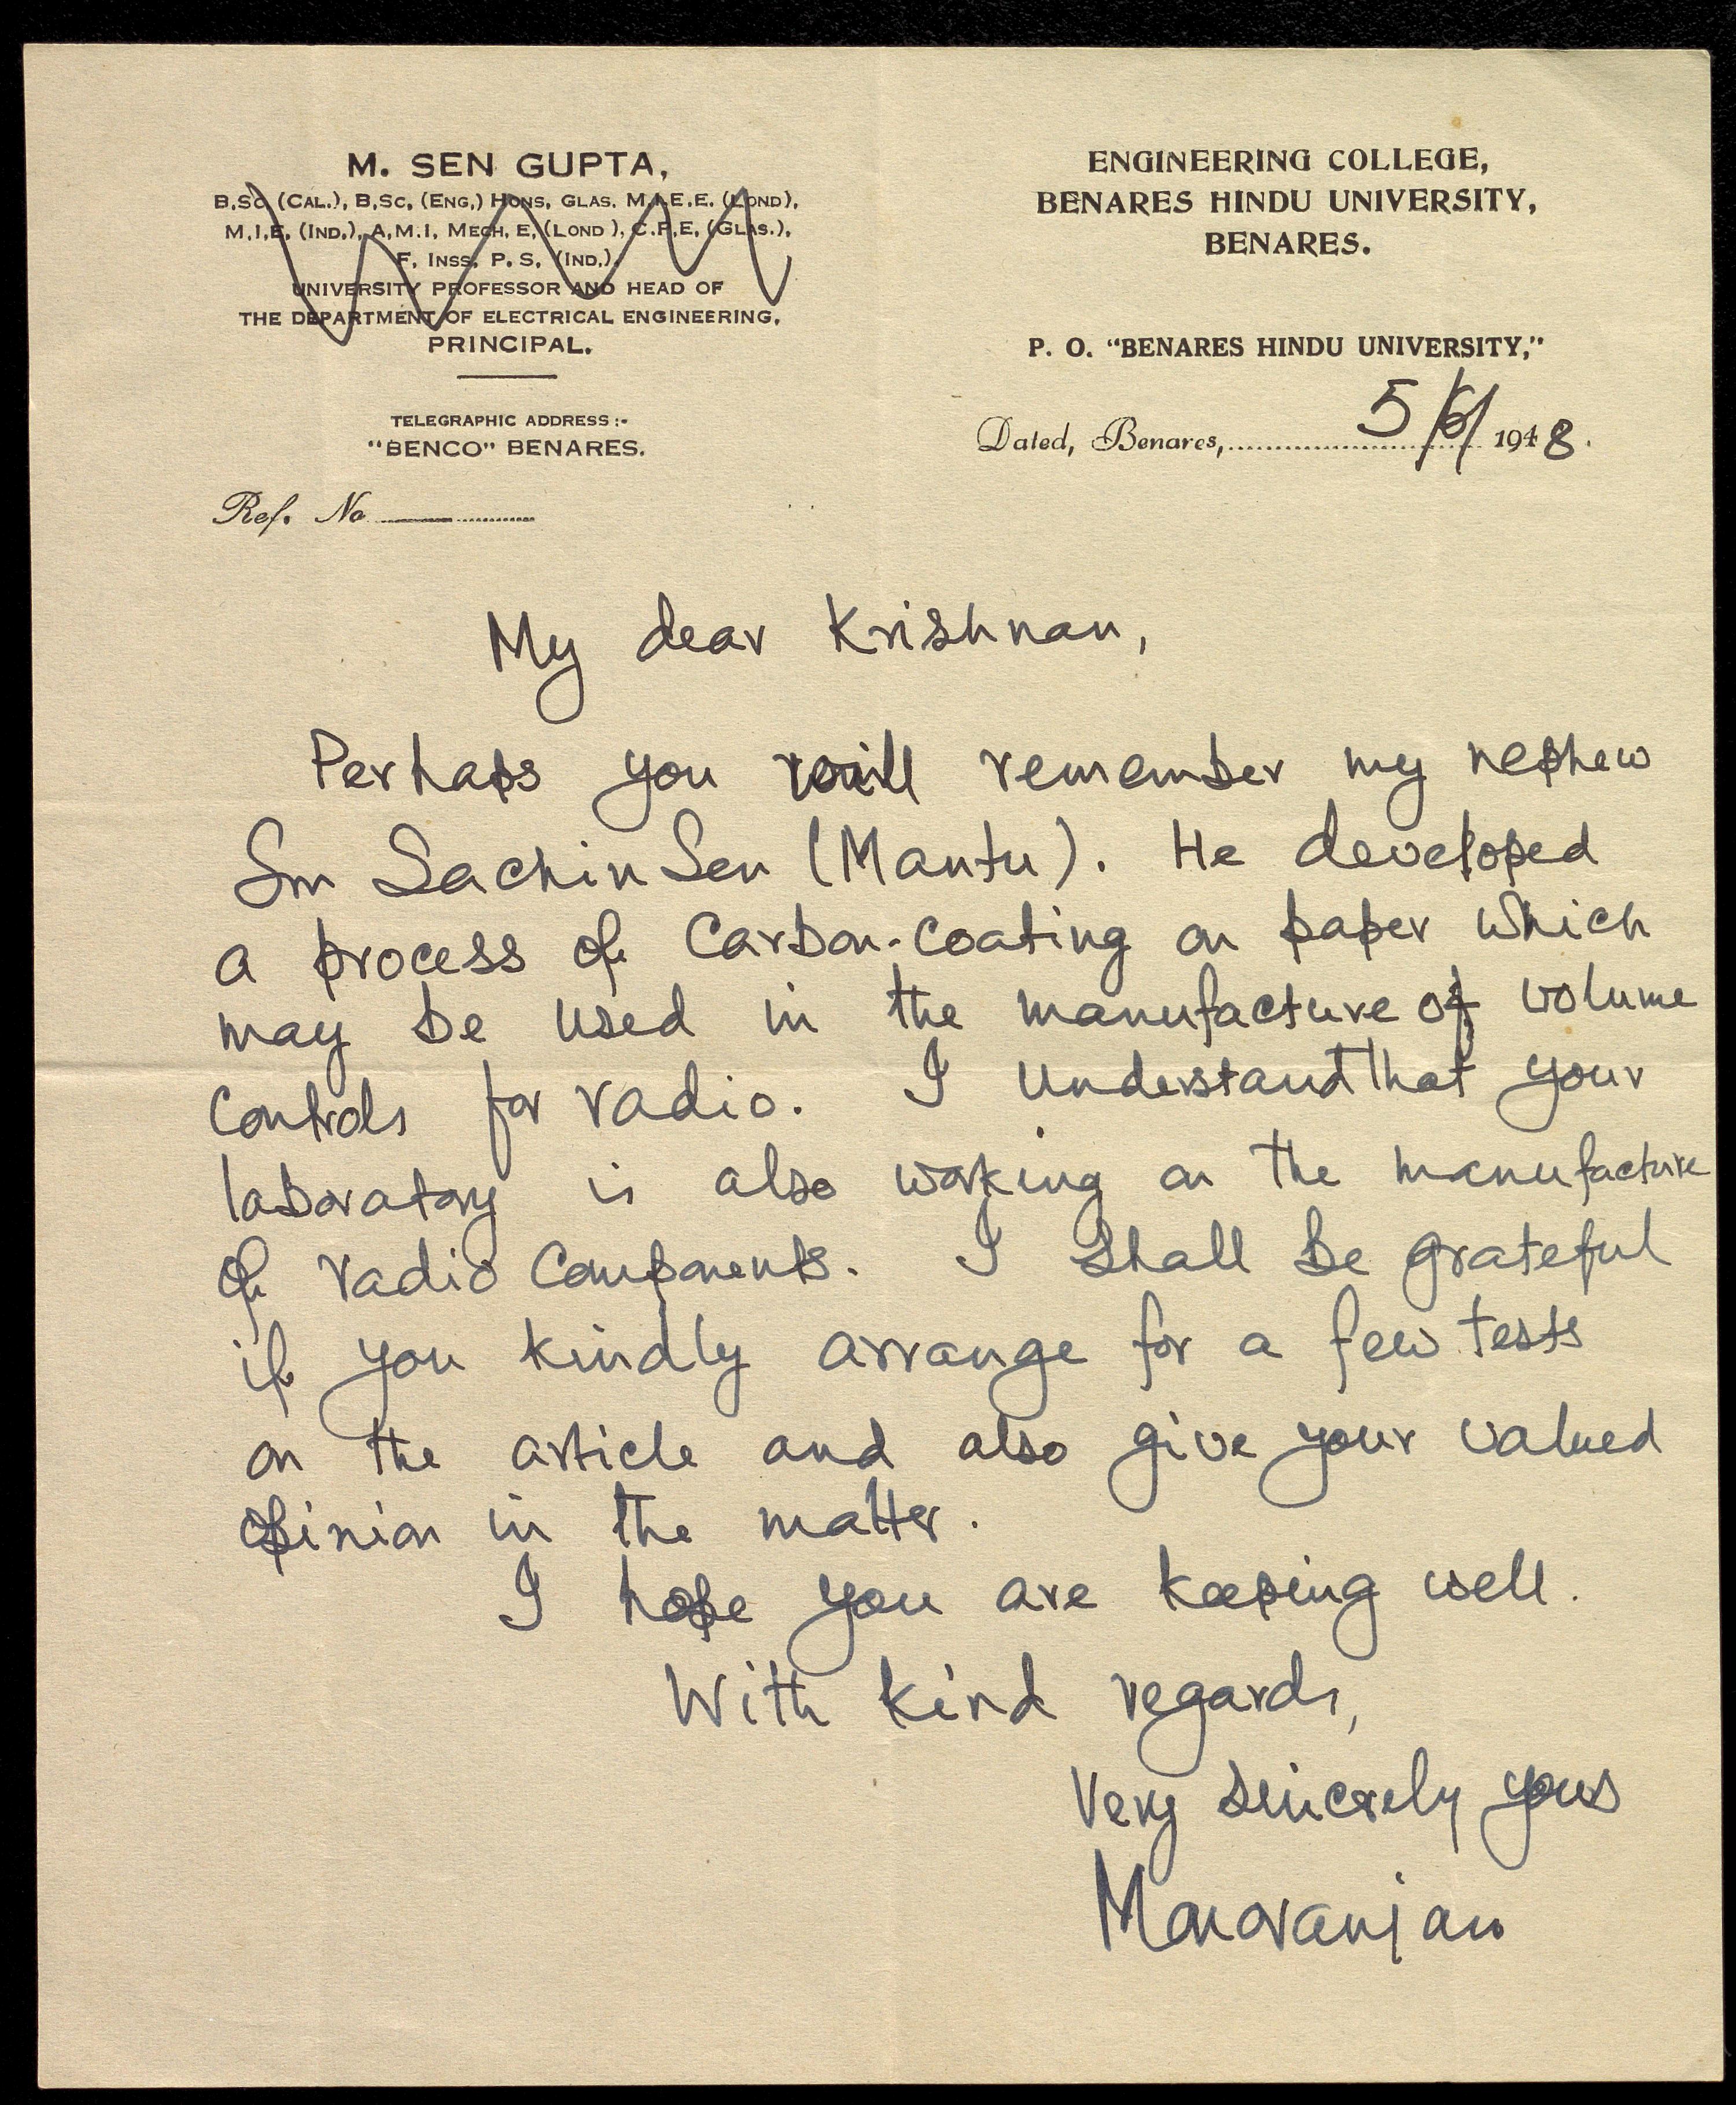 M. SEN GUPTA,
B.SC (CAL.), B.SC. (ENG.) HONS, GLAS. M.I.E.E. (LOND),
M.I.E. (IND.), A.M.I. MECH. E. (LOND), C.P.E. (GLAS.),
F. INSS. P. S. (IND.),
UNIVERSITY PROFESSOR AND HEAD OF
THE DEPARTMENT OF ELECTRICAL ENGINEERING,
PRINCIPAL.
TELEGRAPHIC ADDRESS :-
"BENCO" BENARES.
Ref. No
ENGINEERING COLLEGE,
BENARES HINDU UNIVERSITY,
BENARES.
P. O. "BENARES HINDU UNIVERSITY,"
Dated, Benares, 5/6/ 1948.
My dear Krishnan,
Perhaps you will remember my nephew
Sachin Sen (Mantu). He developed
a process of Carbon-coating on paper which
may be used in the manufacture of volume
controls for radio. I understand that your
laboratory is also working on the manufacture
of radio components. I shall be grateful
if you kindly arrange for a few tests
on the article and also give your valued
opinion in the matter.
I hope you are keeping well.
With kind regards,
Very sincerely yours
Manoranjan